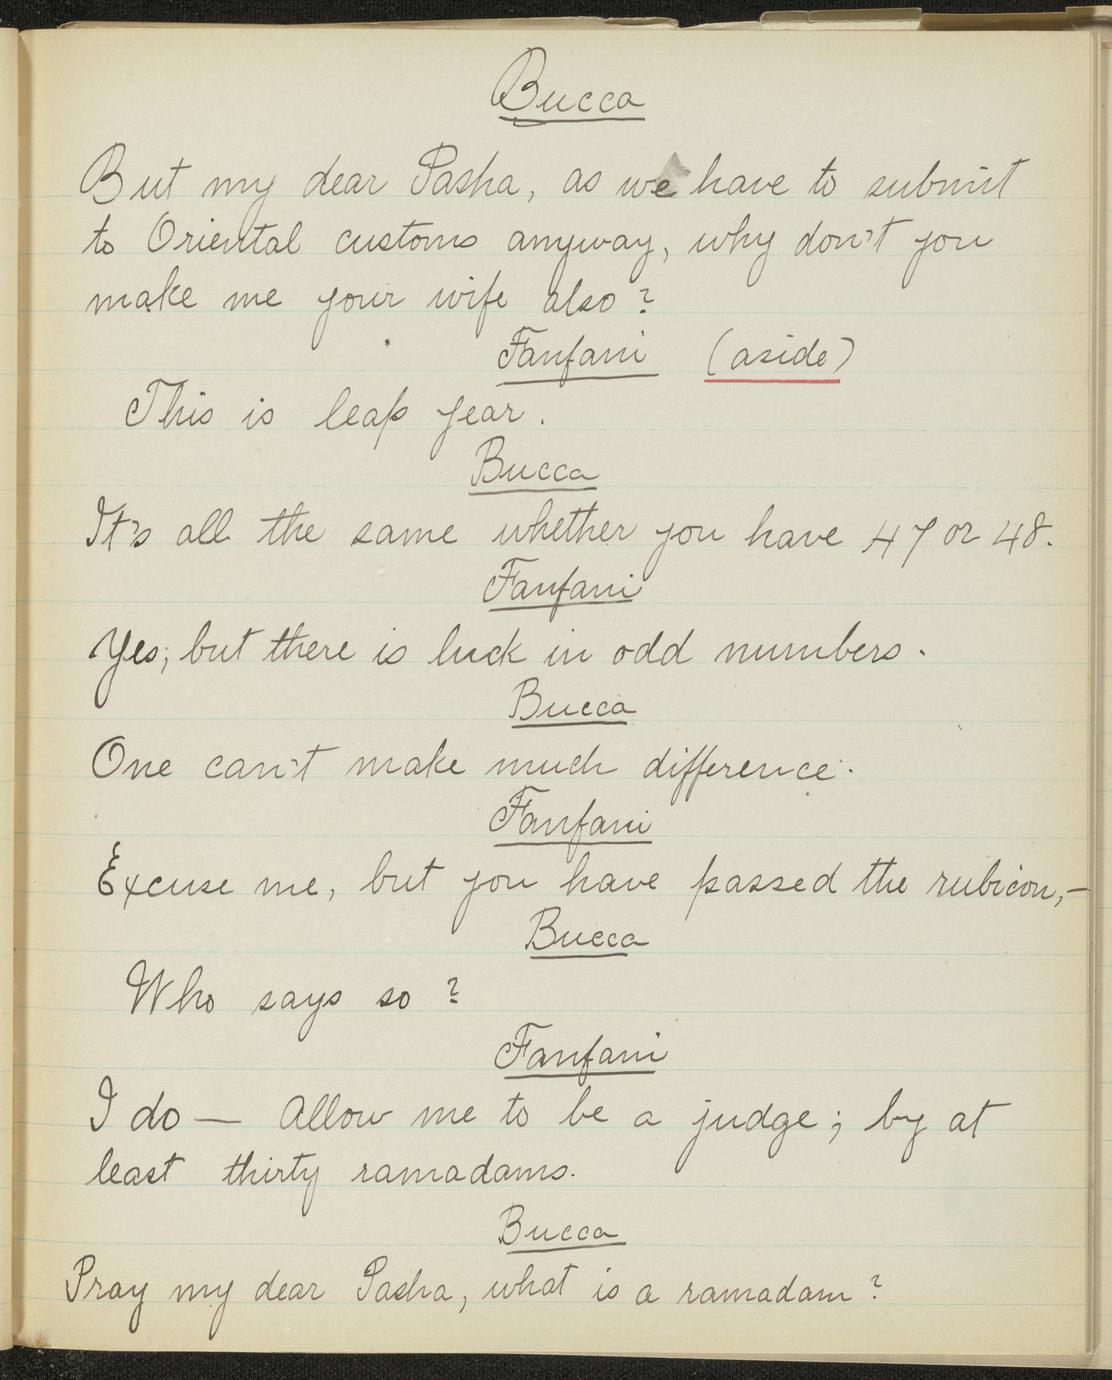 Bucca
But my dear Pasha, as we have to submit
to Oriental customs anyway, why don't you
make me your wife also?
Fanfani (aside)
This is leap year.
Bucca
It's all the same whether you have 47 or 48.
Fanfani
Yes, but there is luck in odd numbers.
Bucca
One can't make much difference.
Fanfani
Excuse me, but you have passed the rubicon,—
Bucca
Who says so?
Fanfani
I do — Allow me to be a judge; by at
least thirty ramadams.
Bucca
Pray my dear Pasha, what is a ramadam?